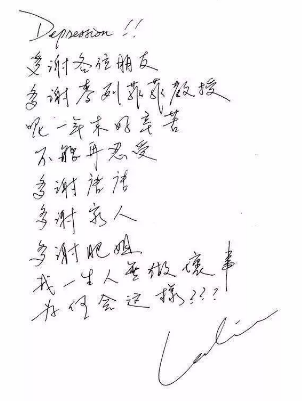 Depression !!
多谢各位朋友
多谢李列菲菲教授
呢一年来好辛苦
不能再忍受
多谢唐唐
多谢家人
多谢肥姐
我一生人無做壞事
为何会这樣???
Leslie